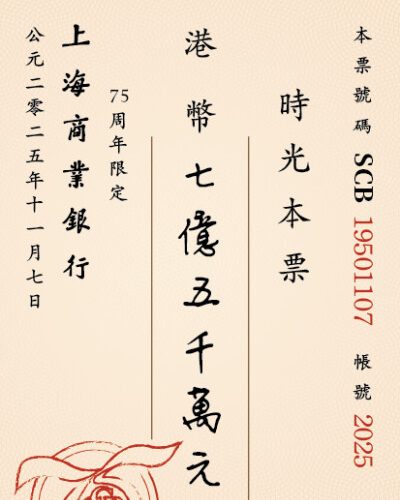 本票號碼 SCB 19501107 帳號 2025
時光本票
港幣七億五千萬元
75周年限定
上海商業銀行
公元二零二五年十一月七日